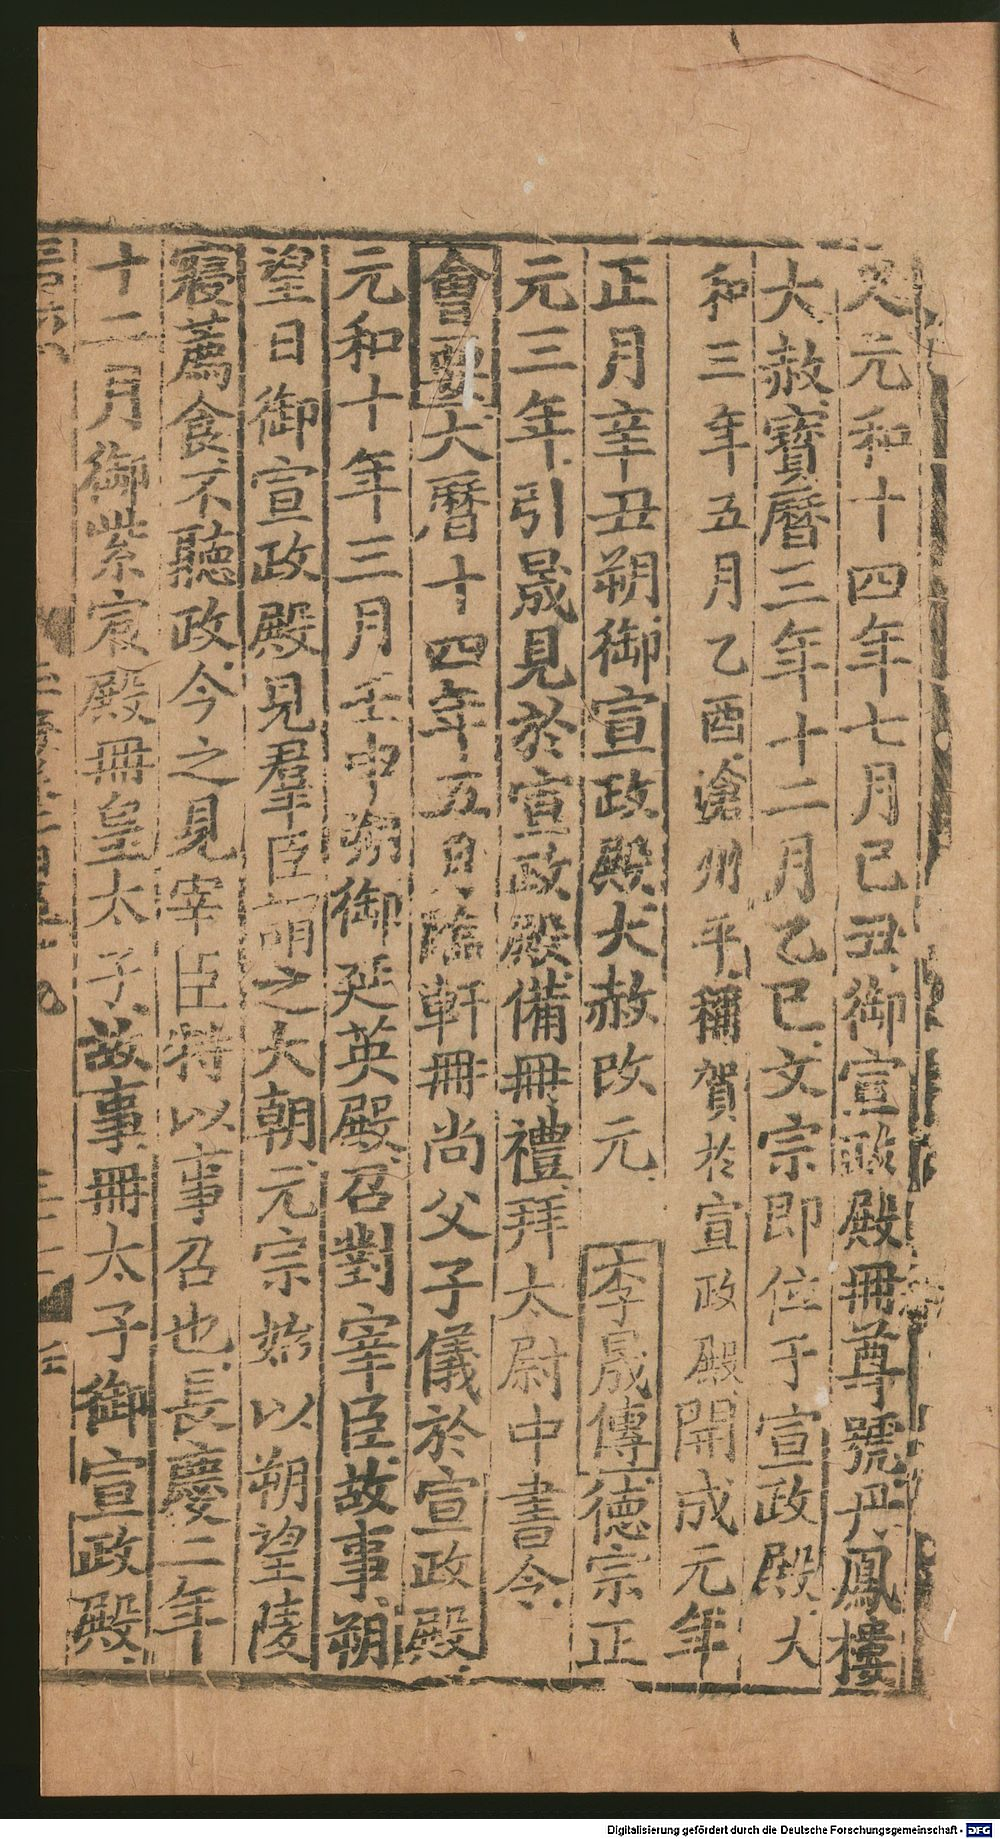 元和十四年七月己丑御宣政殿冊尊號丹鳳樓
大赦寶曆三年十二月乙巳文宗即位于宣政殿大
和三年五月乙酉滄州平稱賀於宣政殿開成元年
正月辛丑朔御宣政殿大赦改元 李晟傳德宗正
元三年引晟見於宣政殿備冊禮拜太尉中書令
會要大曆十四年五月臨軒冊尚父子儀於宣政殿
元和十年三月壬申朔御延英殿召對宰臣故事朔
望日御宣政殿見羣臣謂之大朝元宗始以朔望陵
寢薦食不聽政今之見宰臣特以事召也長慶二年
十二月御紫宸殿冊皇太子故事冊太子御宣政殿
Digitalisierung gefördert durch die Deutsche Forschungsgemeinschaft - DFG